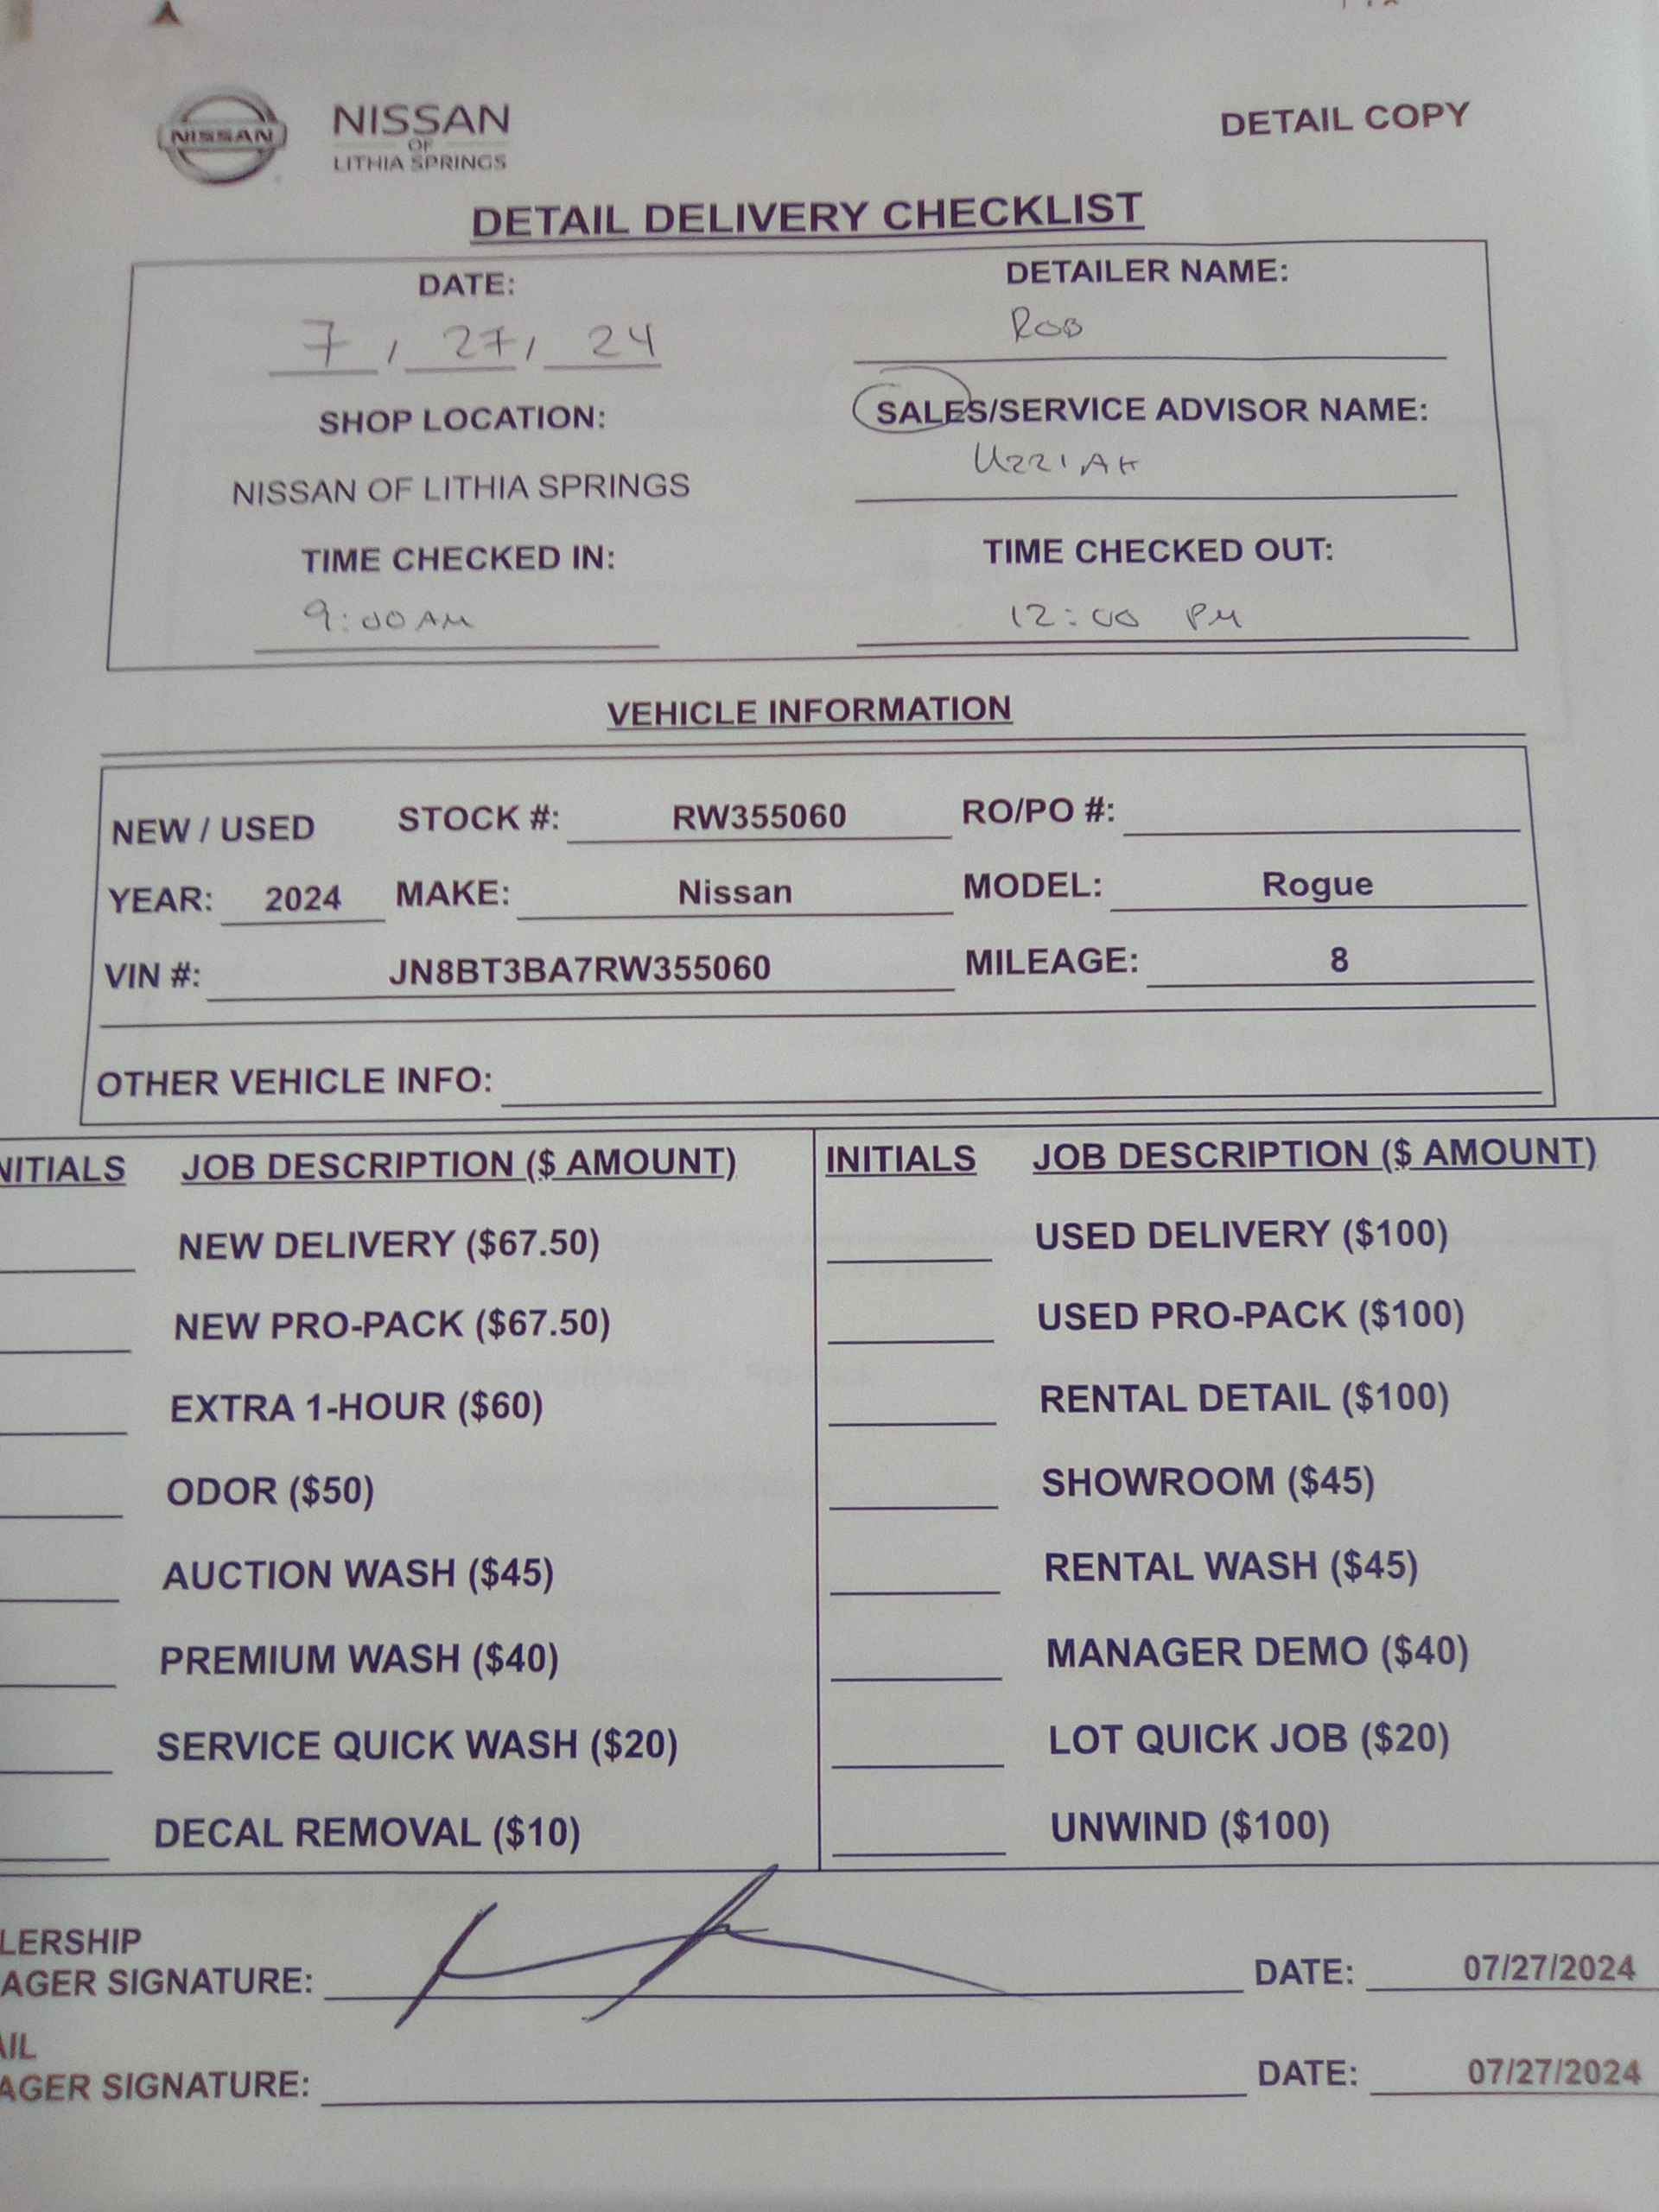 NISSAN
NISSAN
OF
LITHIA SPRINGS
DETAIL COPY
DETAIL DELIVERY CHECKLIST
DATE:
7 / 27 / 24
DETAILER NAME:
ROB
SHOP LOCATION:
NISSAN OF LITHIA SPRINGS
SALES/SERVICE ADVISOR NAME:
UZZIAH
TIME CHECKED IN:
9:00 AM
TIME CHECKED OUT:
12:00 PM
VEHICLE INFORMATION
NEW / USED STOCK #: RW355060 RO/PO #:
YEAR: 2024 MAKE: Nissan MODEL: Rogue
VIN #: JN8BT3BA7RW355060 MILEAGE: 8
OTHER VEHICLE INFO:
NITIALS JOB DESCRIPTION ($ AMOUNT)
NEW DELIVERY ($67.50)
NEW PRO-PACK ($67.50)
EXTRA 1-HOUR ($60)
ODOR ($50)
AUCTION WASH ($45)
PREMIUM WASH ($40)
SERVICE QUICK WASH ($20)
DECAL REMOVAL ($10)
INITIALS JOB DESCRIPTION ($ AMOUNT)
USED DELIVERY ($100)
USED PRO-PACK ($100)
RENTAL DETAIL ($100)
SHOWROOM ($45)
RENTAL WASH ($45)
MANAGER DEMO ($40)
LOT QUICK JOB ($20)
UNWIND ($100)
LERSHIP
AGER SIGNATURE: DATE: 07/27/2024
AIL
AGER SIGNATURE: DATE: 07/27/2024